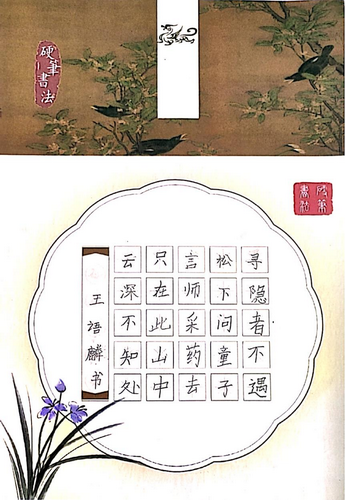 硬筆書法
尋隐者不遇
松下问童子
言师采药去
只在此山中
云深不知处
王语麟书